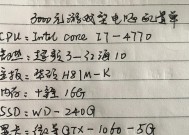 3000元游戏型电脑配置单
CPU: Intel core I7-4770
主板: 华硕H81M-K
内存: 十铨 16G
SSD: WD-240G
显卡: GTX-1060-5G